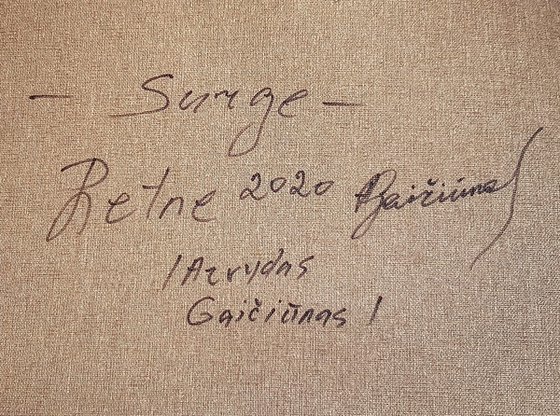 - Surge -
Retne 2020 AGaičiūnas
/Arvydas
Gaičiūnas/